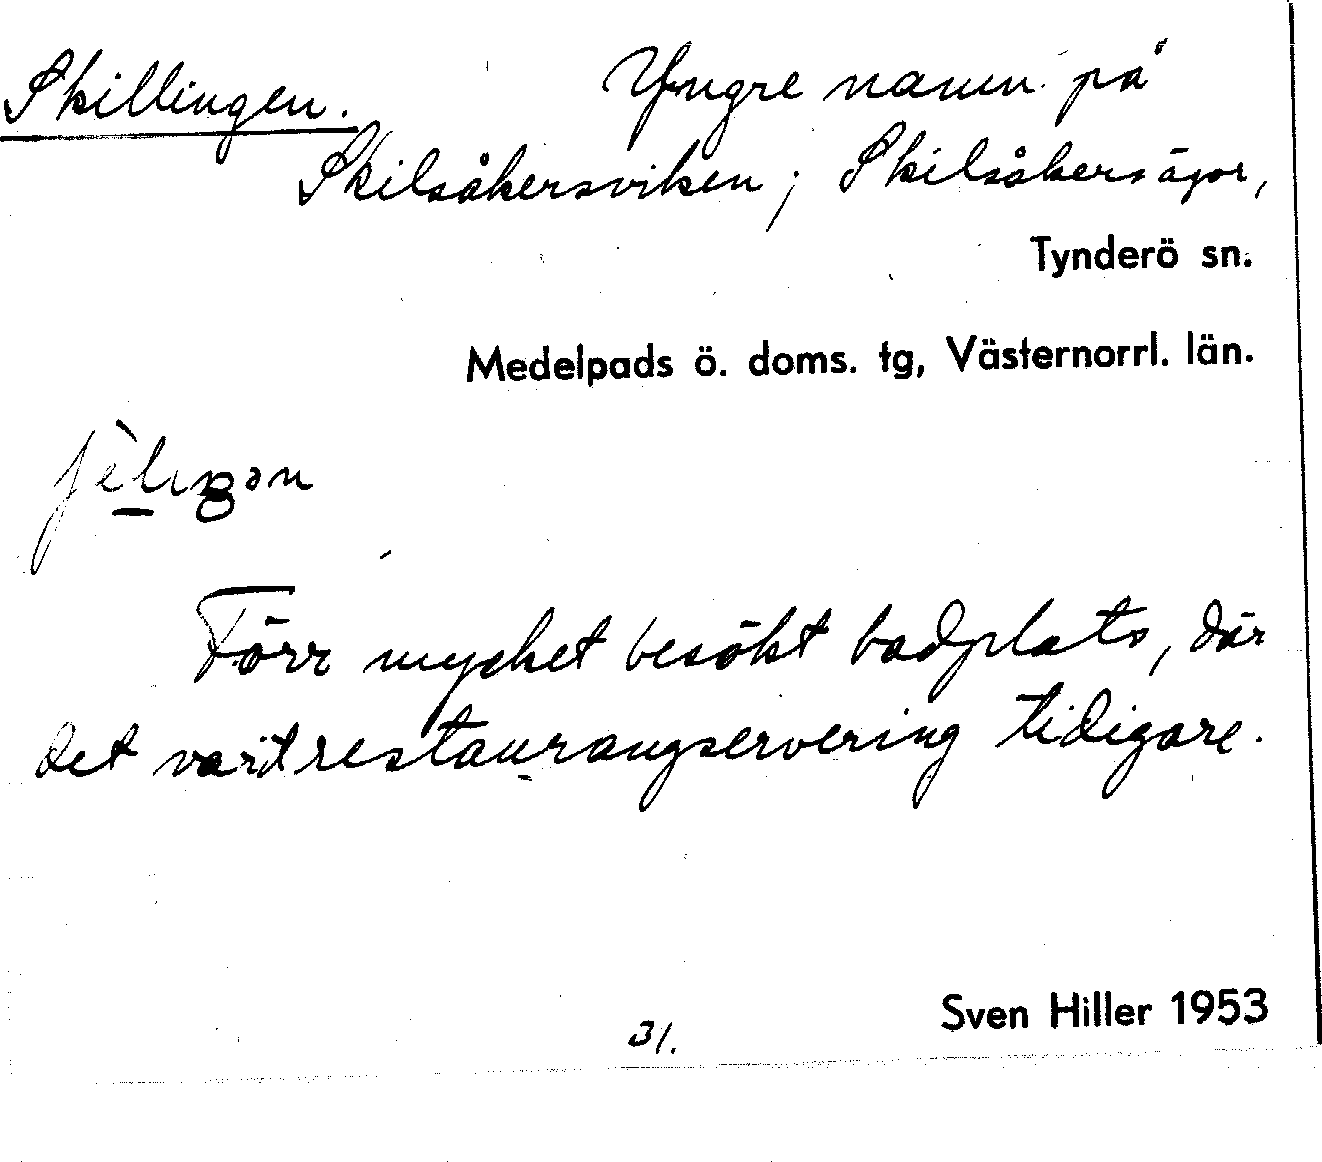 Skillingen. Yngre namn på
Skilsåkersviken; Skilsåkers ägor,
Tynderö sn.
Medelpads ö. doms. tg, Västernorrl. län.
Förr mycket besökt badplats, där
det varit restaurangservering tidigare.
31.
Sven Hiller 1953